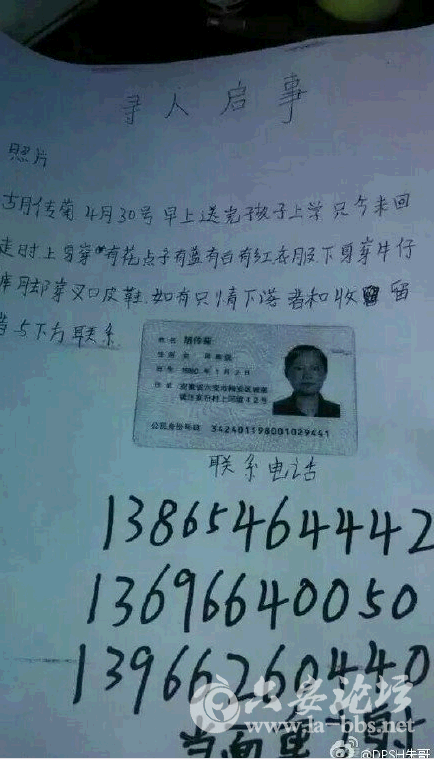 寻人启事
照片
古月传菊 4月30号早上送完孩子上学只今未回
走时上身穿有花点子有蓝有白有红衣服下身穿牛仔
库脚穿叉口皮鞋.如有只情下落者和收留
与下方联系.
姓名 胡传菊
性别 女 民族 汉
出生 1980年1月2日
住址 安徽省六安市裕安区城南
公民身份号码 342401198001029441
联系电话
13865464442
13696640050
13966260440
当面
六安论坛
www.la-bbs.net
@DPSH朱哥